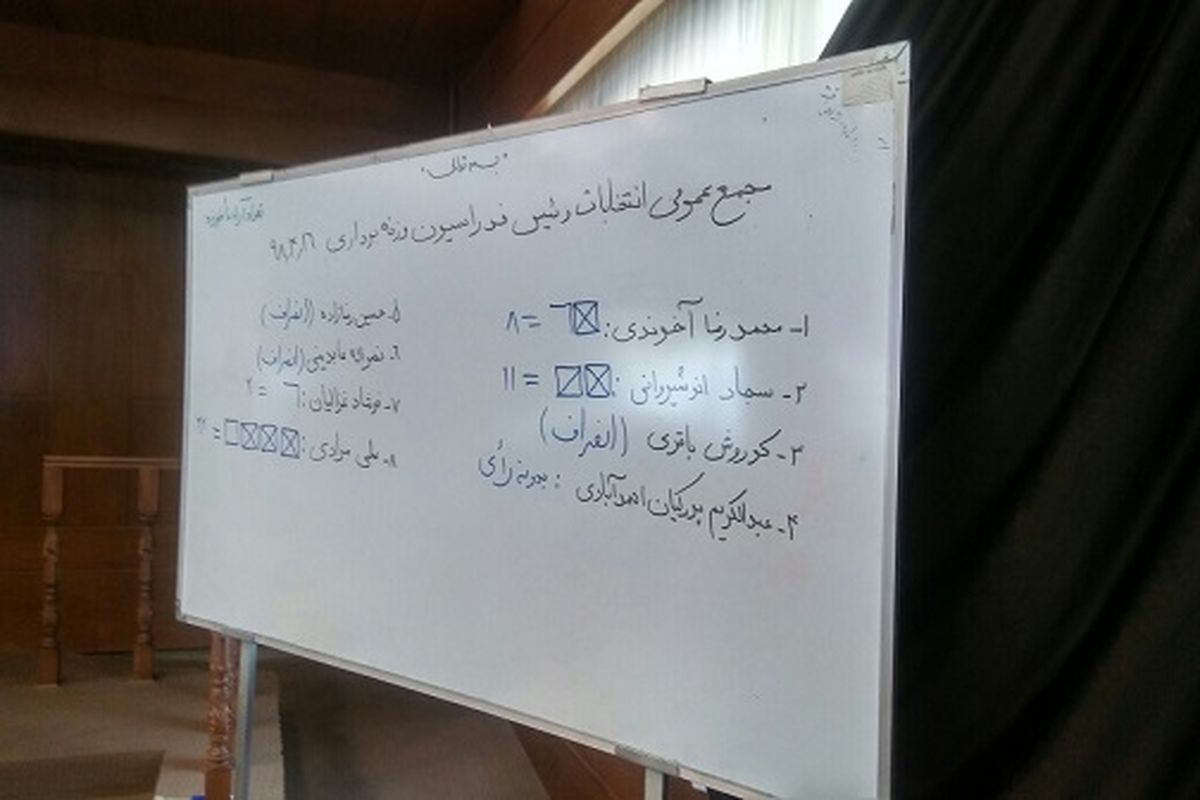 بسمه تعالی
مجمع عمومی انتخابات رئیس فدراسیون وزنه برداری ۹۸,۴,۲۶
۱- محمدرضا آخوندی: = ۸
۲- سجاد انوشیروانی: = ۱۱
۳- کوروش باقری (انصراف)
۴- عبدالکریم پورکیان احمدآبادی: بدون رأی
۵- حسین رضازاده (انصراف)
۶- نصراله عابدینی (انصراف)
۷- نوشاد غزالیان: = ۲
۸- علی مرادی: =